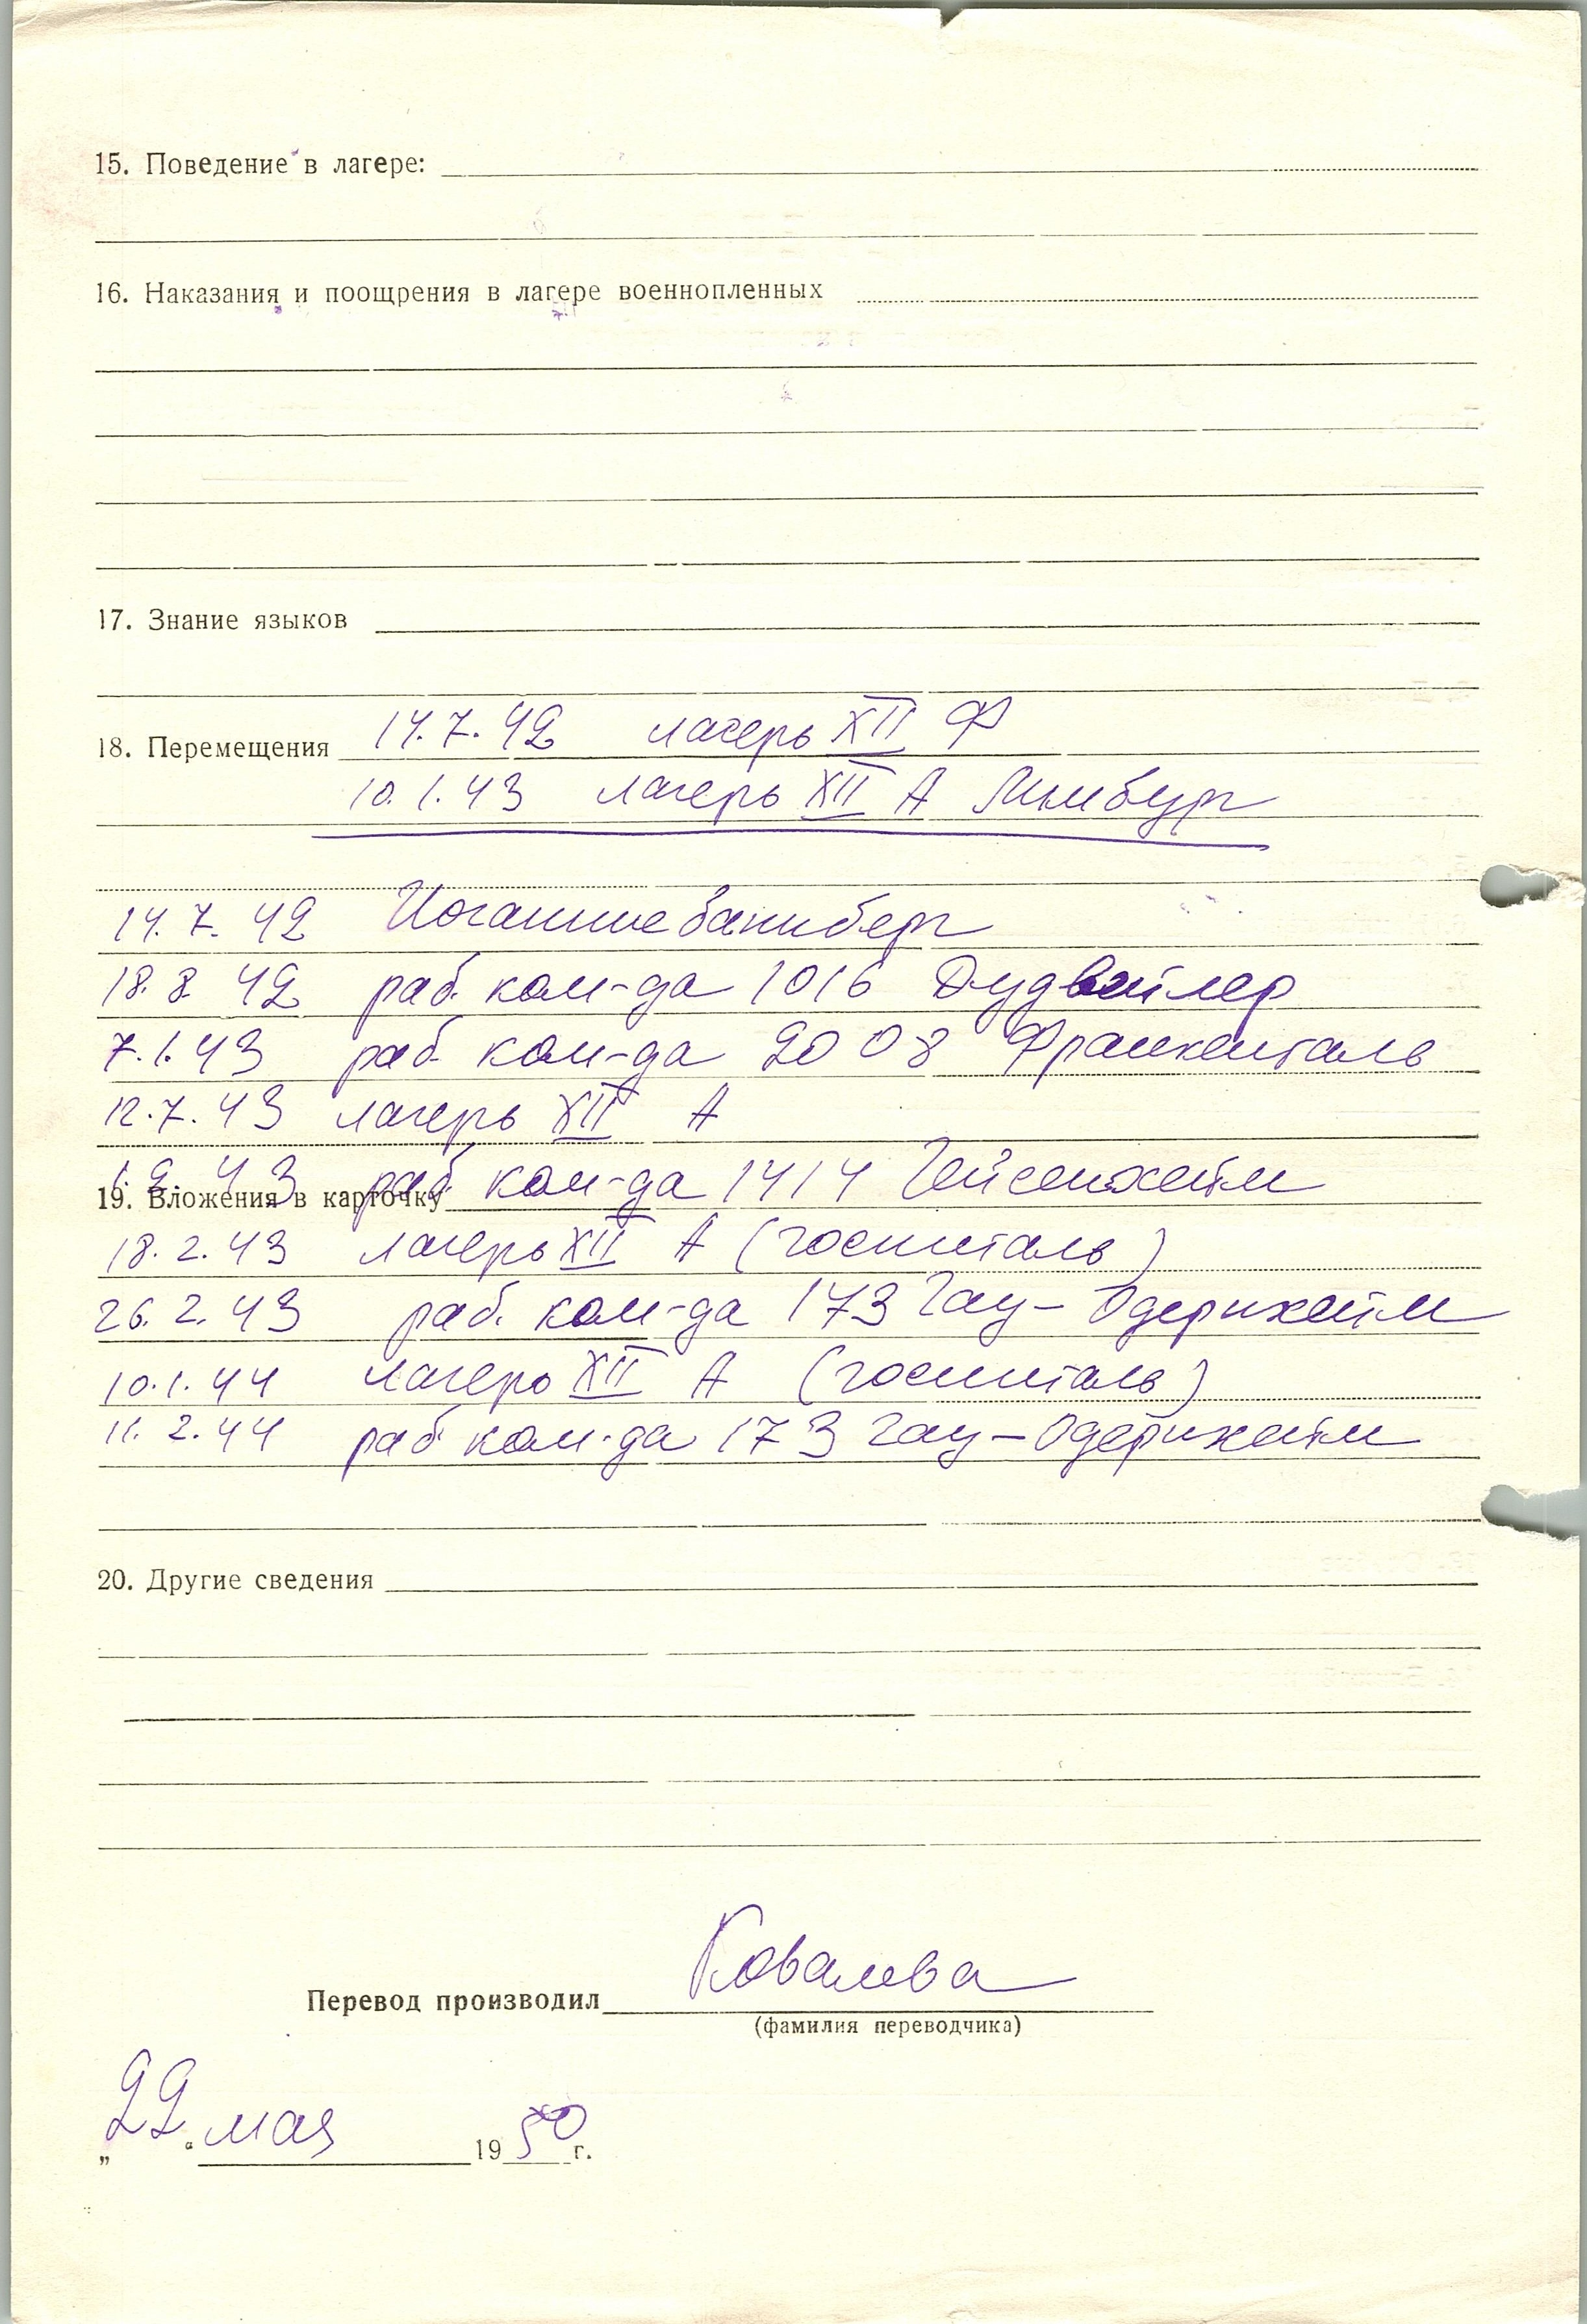 15. Поведение в лагере:
16. Наказания и поощрения в лагере военнопленных
17. Знание языков
18. Перемещения 14.7.42 лагерь XII Ф
10.1.43 лагерь XII А Лимбург
14.7.42 Иоганнисбаннберг
18.8.42 раб. ком-да 1016 Дудвейлер
7.1.43 раб. ком-да 2008 Франкенталь
12.7.43 лагерь XII А
1.2.43 раб. ком-да 1414 Гейсенхейм
19. Вложения в карточку
18.2.43 лагерь XII А (госпиталь)
26.2.43 раб. ком-да 173 Гау-Одернхейм
10.1.44 лагерь XII А (госпиталь)
11.2.44 раб. ком-да 173 Гау-Одернхейм
20. Другие сведения
Перевод производил Ковалева
(фамилия переводчика)
„22“ мая 1950 г.